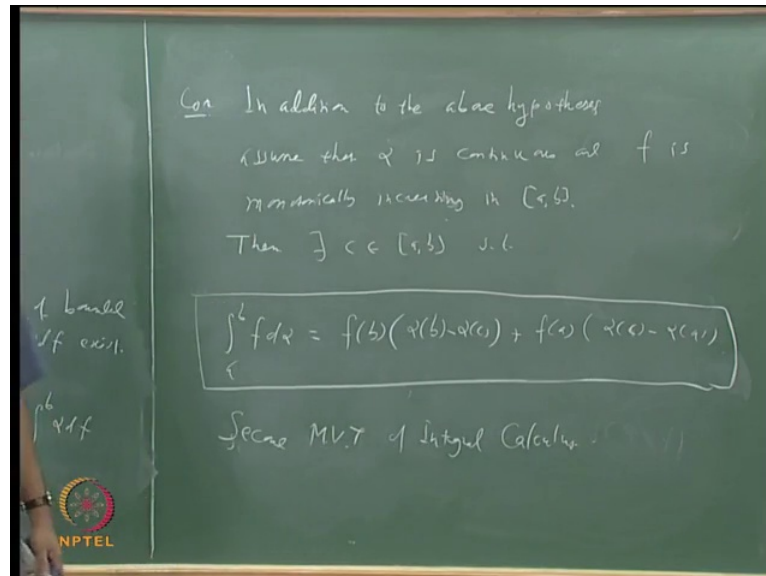 Cor In addition to the above hypotheses
assume that α is continuous and f is
monotonically increasing in [a, b].
Then ∃ c ∈ [a, b] s.t.
∫_a^b f dα = f(b)(α(b) - α(c)) + f(a)(α(c) - α(a))
Second M.V.T of Integral Calculus.
of bounded
df exist.
∫^b α df
NPTEL